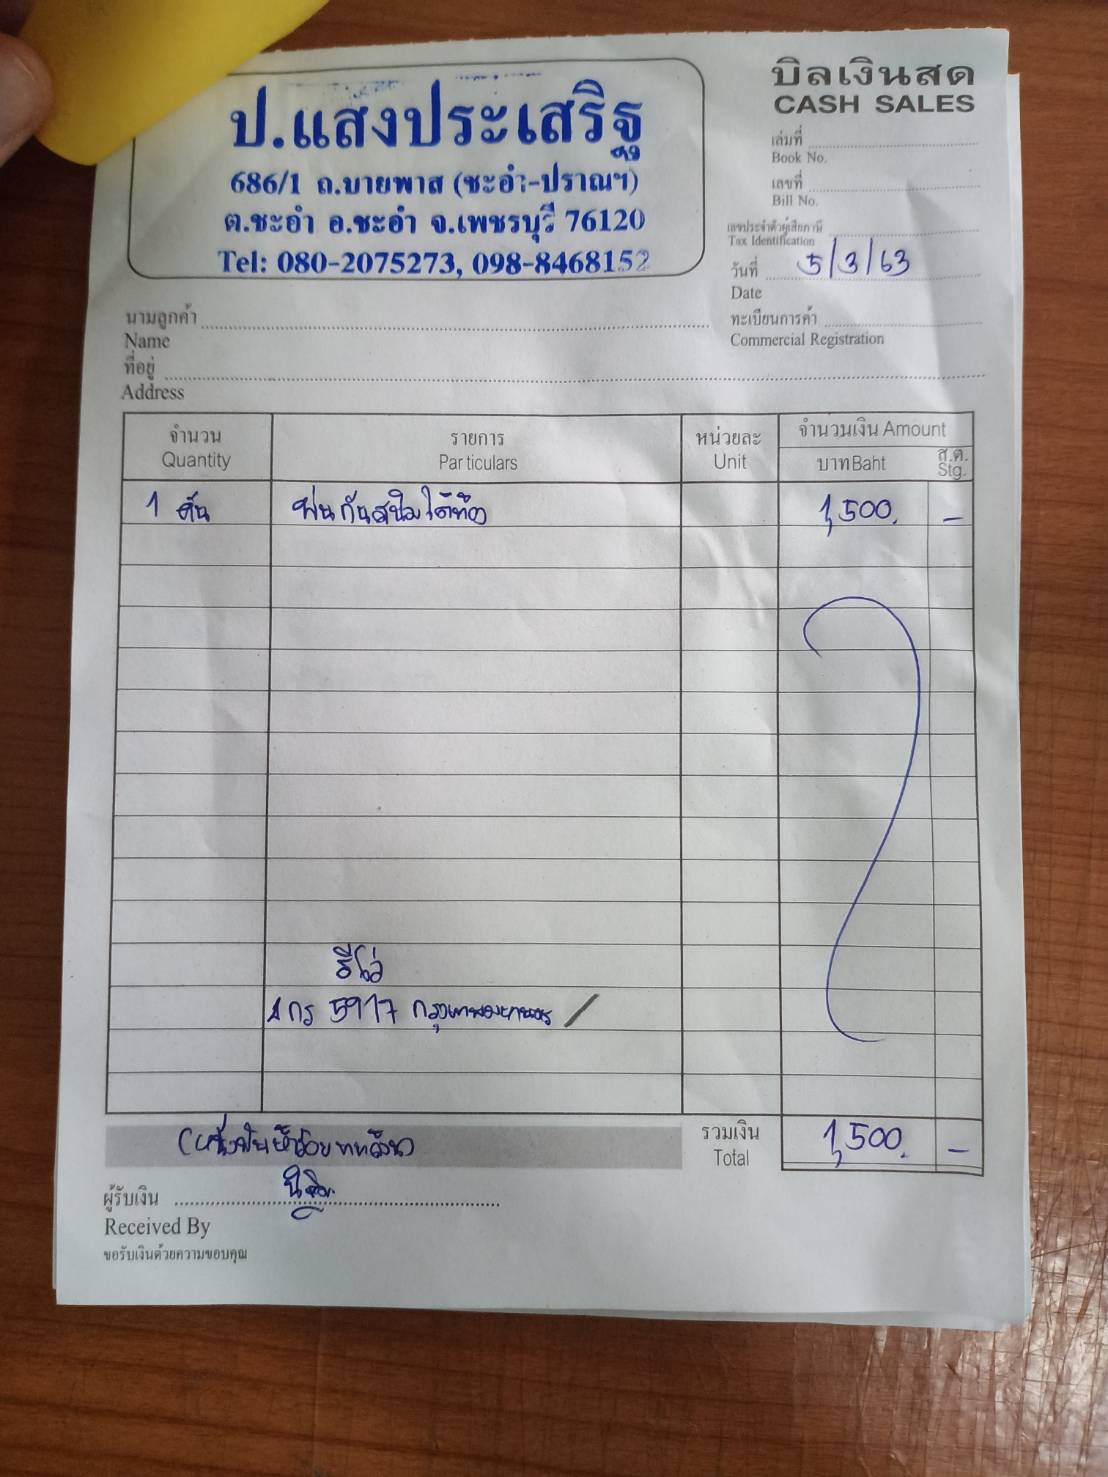 บิลเงินสด
CASH SALES
ป.แสงประเสริฐ
686/1 ถ.บายพาส (ชะอำ-ปราณฯ)
ต.ชะอำ อ.ชะอำ จ.เพชรบุรี 76120
Tel: 080-2075273, 098-8468152
เล่มที่
Book No.
เลขที่
Bill No.
เลขประจำตัวผู้เสียภาษี
Tax Identification
วันที่ 5/3/63
Date
ทะเบียนการค้า
Commercial Registration
นามลูกค้า
Name
ที่อยู่
Address
จำนวน รายการ หน่วยละ จำนวนเงิน Amount
Quantity Particulars Unit บาท Baht ส.ต. Stg.
1 คัน พ่นกันสนิมใต้ท้อง 1,500. -
รีโว่
1กร 5917 กรุงเทพมหานคร /
(หนึ่งพันห้าร้อยบาทถ้วน) รวมเงิน 1,500. -
Total
ผู้รับเงิน
Received By
ขอรับเงินด้วยความขอบคุณ